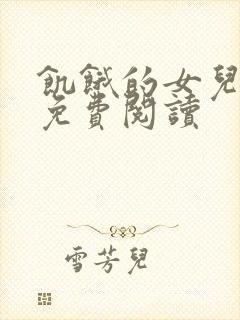 飢餓的女兒
免費閱讀
雪芳兒